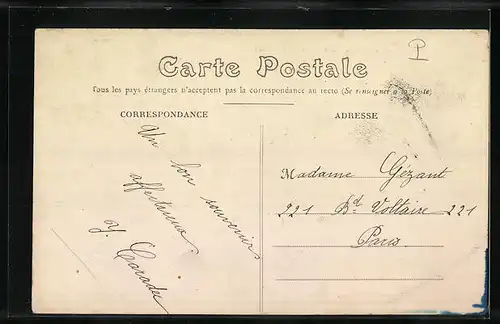 P
Carte Postale
Tous les pays étrangers n'acceptent pas la correspondance au recto (Se renseigner à la Poste)
CORRESPONDANCE
Un bon souvenir
affectueux
Y.
ADRESSE
Madame Gézant
221 Bd. Voltaire 221
Paris